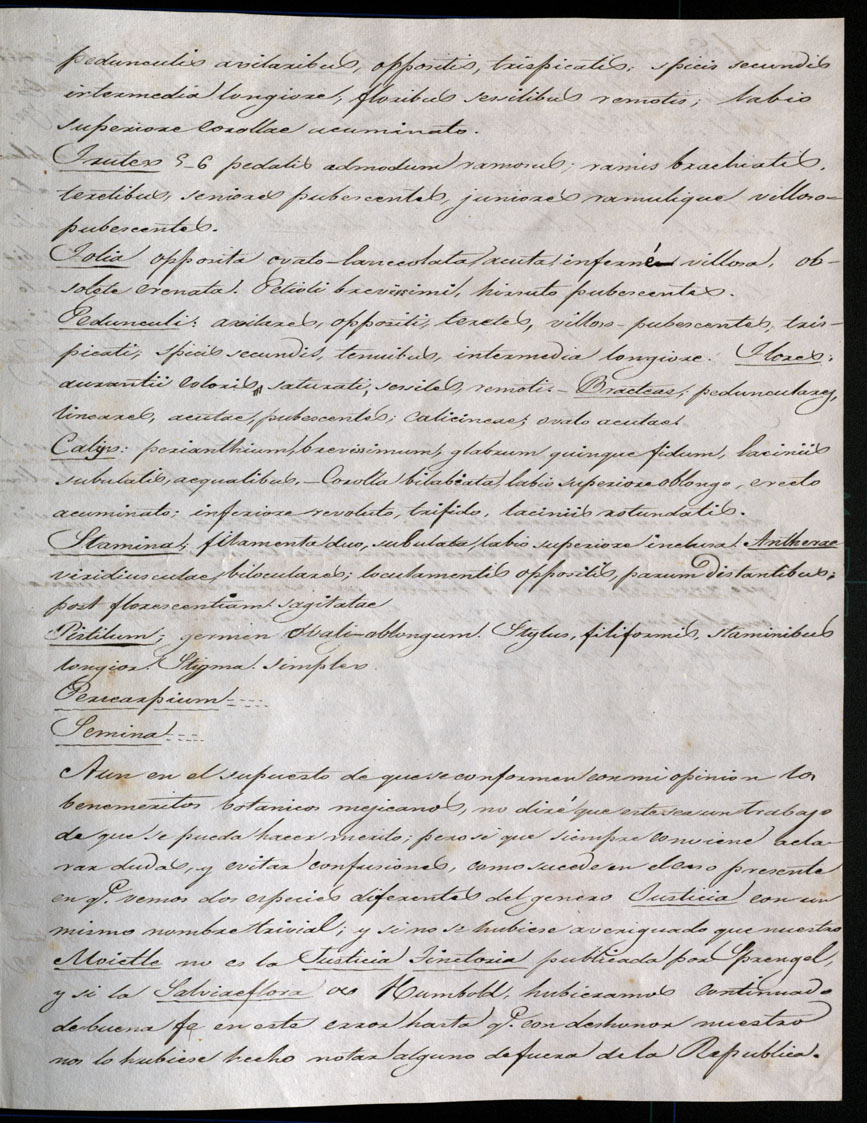 pedunculis axilaribus, oppositis, trispicatis; spicis secundis
intermedia longiore, floribus sessilibus remotis; labio
superiore corollae acuminato.
Frutex 5-6 pedalis admodum ramosus; ramis brachiatis,
teretibus, seniores pubescentes, juniores ramulique villoso-
pubescentes.
Folia opposita ovato-lanceolata, acuta, infernè villosa, ob-
solete crenata. Petioli brevissimi, hirsuto pubescentes.
Pedunculi: axilares, oppositi, teretes, villoso-pubescentes, tris-
picati, spicis secundis, tenuibus, intermedia longiore. Flores:
aurantii coloris, saturati, sesiles, remotis- Bracteas; pedunculares,
lineares, acutae, pubescentes; calicineae, ovato acutae.
Calÿs: perianthium, brevissimum, glabrum quinque fidum, laciniis
subulatis, aequalibus. -Corolla bilabiata, labio superiore oblongo, erecto
acuminato; inferiore revoluto, trifido, laciniis rotundatis.
Stamina; filamenta duo, subulata, labio superiore inclusa. Antherae
viridiusculae, biloculares; loculamentis oppositis, parum distantibus;
post florescentiam sagitatae
Pistilum; germen ovali-oblongum. Stylus, filiformis, staminibus
longior. Stigma simplex
Pericarpium ----
Semina ----
Aun en el supuesto de que se conformen con mi opinion los
benemeritos botanicos mejicanos, no diré que este sea un trabajo
de que se pueda hacer merito; pero sé que siempre conviene acla-
rar dudas, y evitar confusiones, como sucede en el caso presente
en qe. vemos dos especies diferentes del genero Justicia con un
mismo nombre trivial; y si no se hubiese averiguado que nuestro
Moictle no es la Justicia Tinctoria publicada por Sprengel,
y si la Salviaeflora de Humbold, hubieramos continuado
de buena fe en este error hasta qe. con deshonor nuestro
nos lo hubiese hecho notar alguno de fuera de la Republica.